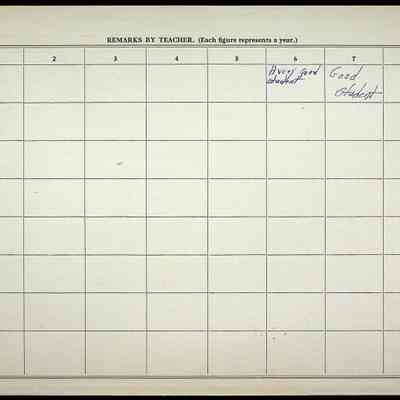 REMARKS BY TEACHER. (Each figure represents a year.)
2 3 4 5 6 7
A very good
student
Good
Student